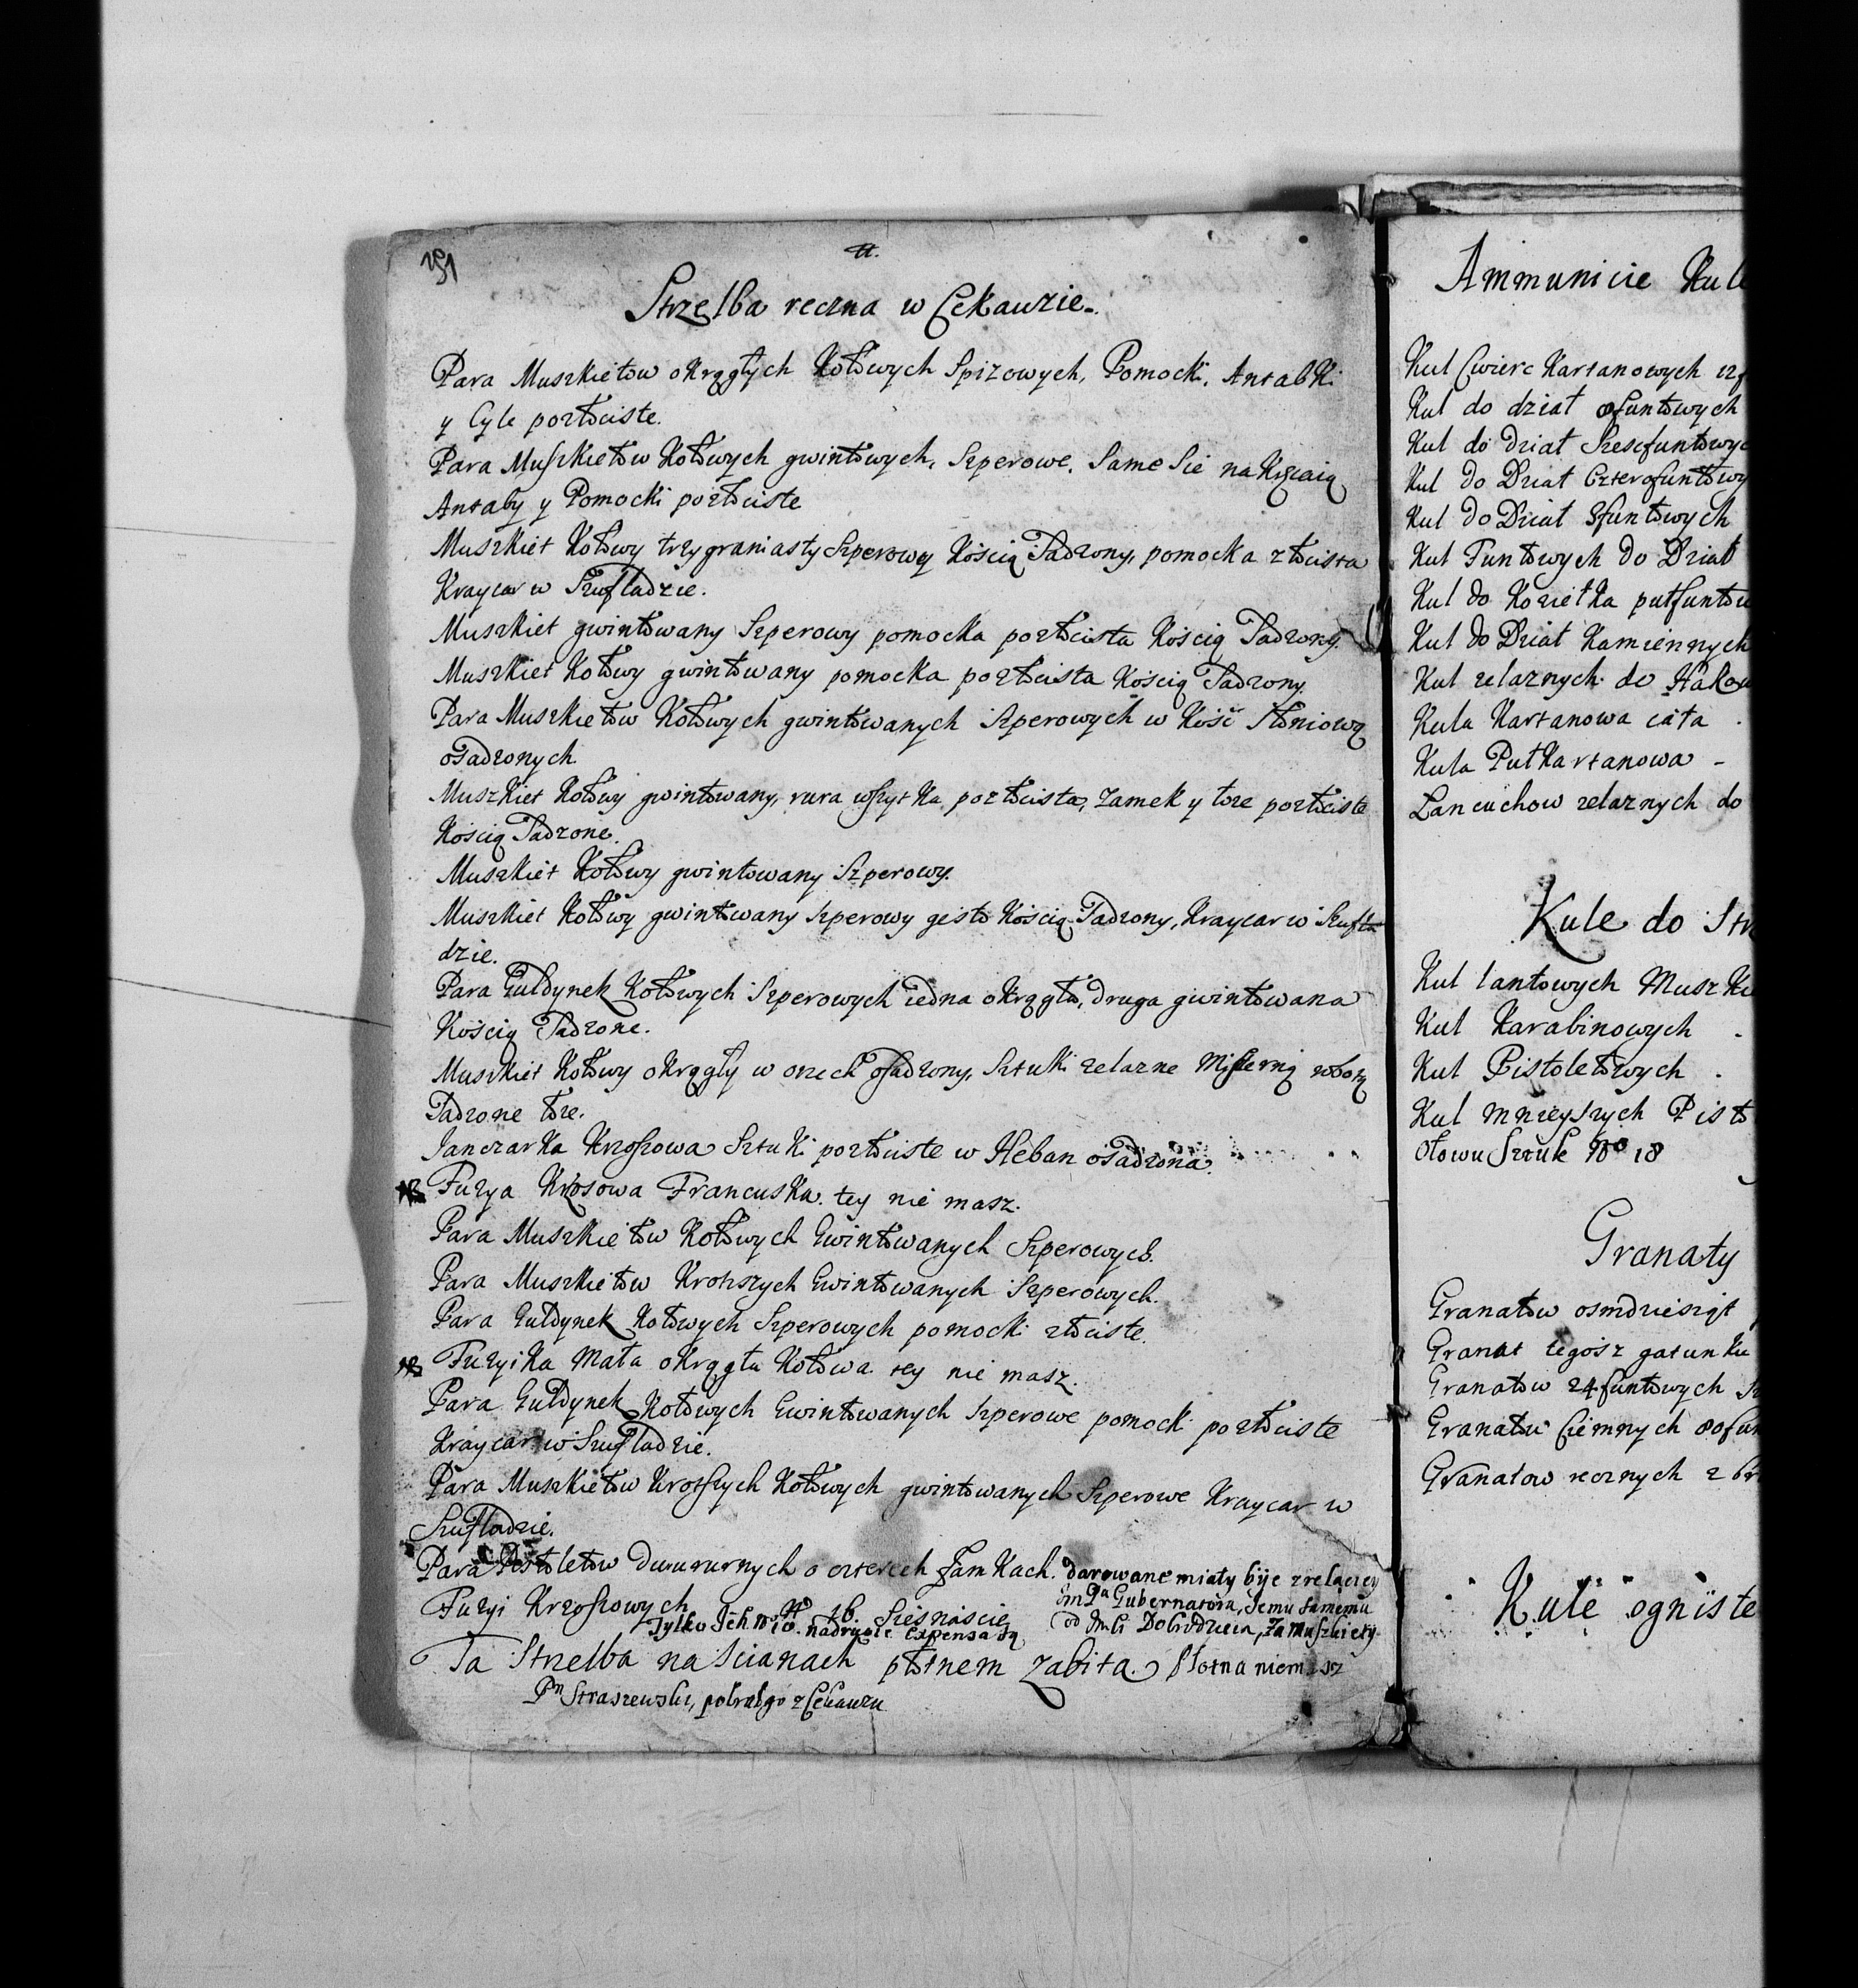 Strzelba reczna w Cekauzie.
Para Muszkietow okrągłych Kołowych Spizowych, Pomocki, Antabki
y Cyle pozłociste.
Para Muszkietow Kołowych gwintowych, Szperowe, Same Sie nakręcaią
Antaby y Pomocki pozłociste
Muszkiet Kołowy trzygraniasty Szperowy Kością Sadzony, pomocka złocista
Kraycar w Szufladzie.
Muszkiet gwintowany Szperowy pomocka pozłocista Kością Sadzony.
Muszkiet Kołowy gwintowany pomocka pozłocista Kością Sadzony.
Para Muszkietow Kołowych gwintowanych Szperowych w Kość Słoniową
osadzonych.
Muszkiet Kołowy gwintowany, rura wszytka pozłocista, Zamek y łoze pozłociste
Kością Sadzone.
Muszkiet Kołowy gwintowany Szperowy.
Muszkiet Kołowy gwintowany szperowy gęsto Kością Sadzony, Kraycar w Szufla
dzie.
Para Guldynek Kołowych Szperowych iedna okrągła, druga gwintowana
Kością Sadzone.
Muszkiet Kołowy okrągły w orzech osadzony, Sztuki zelazne Misterną robotą
Sadzone łoze.
Janczarka Krzosowa Sztuki pozłociste w Heban osadzona.
NB Fuzya Krosowa Francuska. tey nie masz.
Para Muszkietow Kołowych Gwintowanych Szperowych.
Para Muszkietow Krotszych Gwintowanych Szperowych.
Para Gułdynek Kołowych Szperowych pomocki złociste.
NB Fuzyika Mała okrągła Kołowa. tey nie masz.
Para Gułdynek Kołowych Gwintowanych Szperowe pomocki pozłociste
Kraycar w Szufladzie.
Para Muszkietow Krotszych Kołowych gwintowanych Szperowe Kraycar w
Szufladzie.
Para Pistoletow dwururnych o czterech Zamkach. darowane miały bydz z relaciey
Fuzyi Krzosowych No 16. Szesnascie Im Pa Gubernatora, Jemu samemu
Tylko Ich No 10. expensa są od Im Ci Dobrodzieia, za muszkiety
Ta Strzelba na Scianach płotnem zabita. Płotna niemasz
Pn Straszewski, pobrał go z Cekauzu
Ammunicie Kul
Kul Cwierc Kartanowych
Kul do dział 8funtowych
Kul do dział Szescfuntowyc
Kul do Dział Czterofuntowy
Kul do Dział 3funtowych
Kul Funtowych do Dział
Kul do Koziełka pułfuntow
Kul do Dział Kamiennych
Kul zelaznych do Hakow
Kula Kartanowa cała
Kula PułKartanowa -
Lancuchow zelaznych do
Kule do Str
Kul lantowych Muszki
Kul Karabinowych
Kul Pistoletowych
Kul mnieyszych Pisto
Ołowu Sztuk No 18
Granaty
Granatow osmdziesiąt
Granat tegosz gatunku
Granatow 24 funtowych
Granatow Ciemnych 80
Granatow recznych z
Kule ogniste